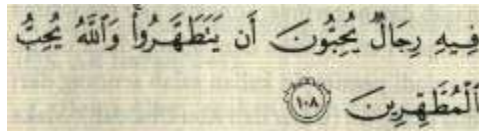 فِيهِ رِجَالٌ يُحِبُّونَ أَن يَتَطَهَّرُوا۟ وَٱللَّهُ يُحِبُّ
ٱلْمُطَّهِّرِينَ ١٠٨